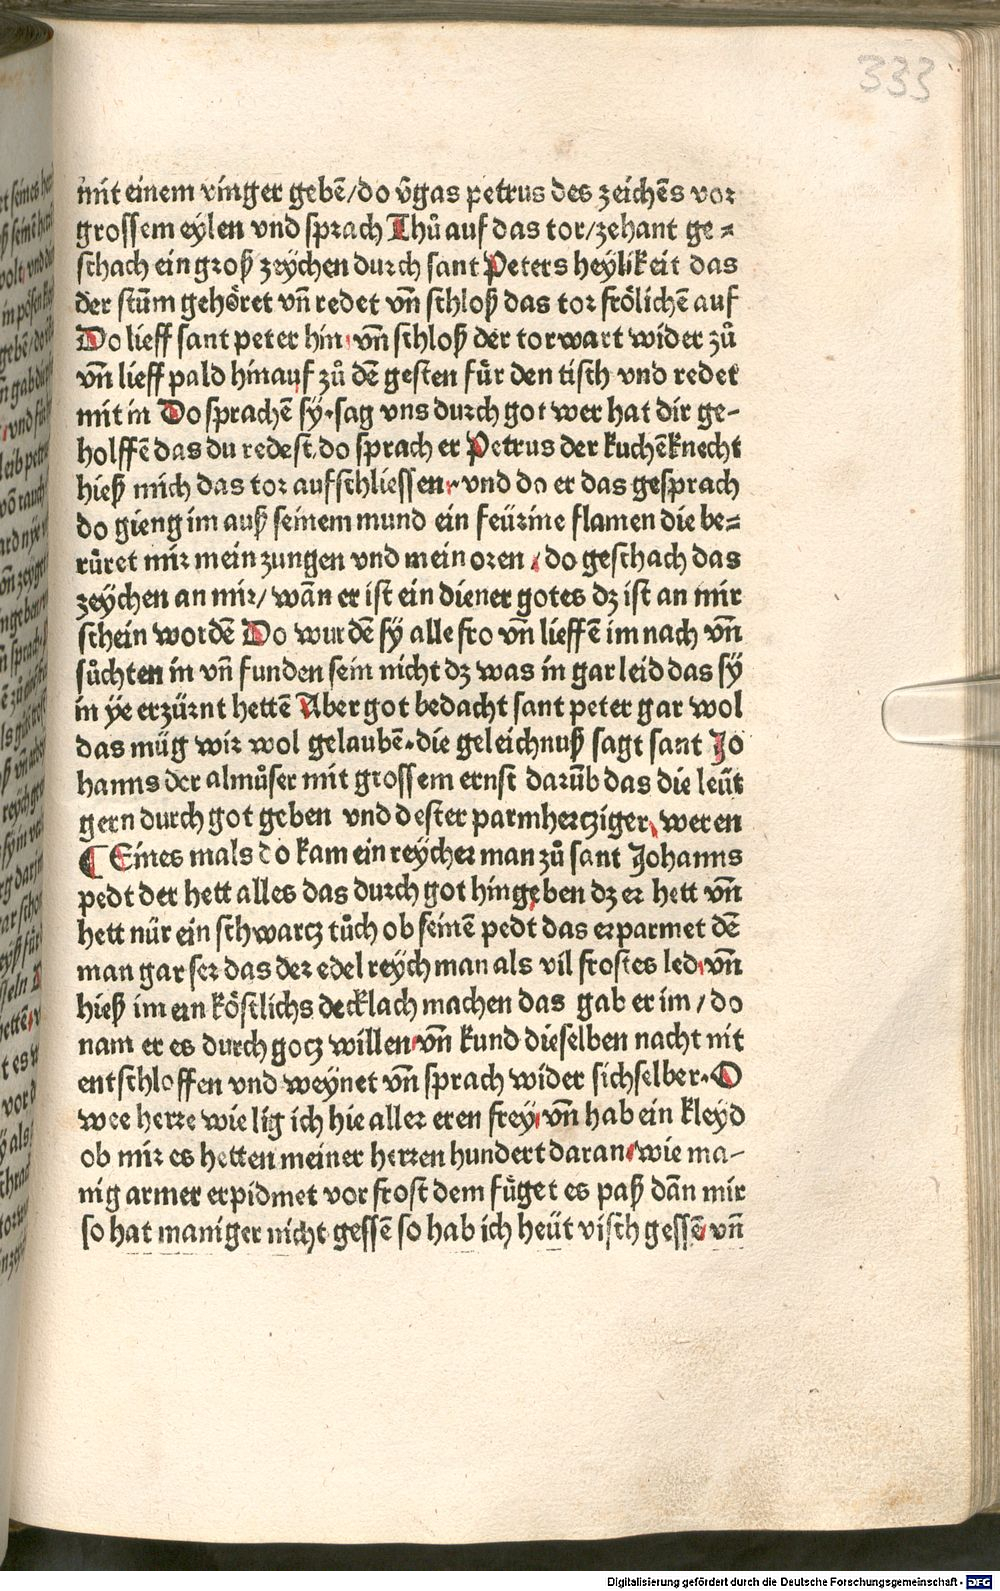 333
mit einem vinger gebē/do v̄gas petrus des zeichēs vor
grossem eylen vnd sprach Thů auf das tor/zehant ge⸗
schach ein groß zeychen durch sant Peters heylikeit das
der stūm gehöret vn̄ redet vn̄ schloß das tor frölichē auf
Do lieff sant peter hin vn̄ schloß der torwart wider zů
vn̄ lieff pald hinauf zů dē gesten für den tisch vnd redet
mit in Do sprachē sy·sag vns durch got wer hat dir ge-
holffē das du redest.do sprach er Petrus der kuchēknecht
hieß mich das tor aufschliessen·vnd do er das gesprach
do gieng im auß seinem mund ein feürine flamen die be⸗
růret mir mein zungen vnd mein oren/do geschach das
zeychen an mir/wān er ist ein diener gotes dz ist an mir
schein wordē Do wurdē sy alle fro vn̄ lieffē im nach vn̄
sůchten in vn̄ funden sein nicht dz was in gar leid das sy
in ye erzürnt hettē Aber got bedacht sant peter gar wol
das müg wir wol gelaubē·die geleichnuß sagt sant Jo
hanns der almůser mit grossem ernst darūb das die leüt
gern durch got geben vnd dester parmhertziger weren
¶ Eines mals do kam ein reycher man zů sant Johanns
pedt der hett alles das durch got hingeben dz er hett vn̄
hett nür ein schwartz tůch ob seinē pedt das erparmet dē
man gar ser das der edel reych man als vil frostes led vn̄
hieß im ein köstlichs decklach machen das gab er im/do
nam er es durch gotz willen vn̄ kund dieselben nacht nit
entschloffen vnd weynet vn̄ sprach wider sichselber·O
wee herre wie lig ich hie aller eren frey vn̄ hab ein kleyd
ob mir es hetten meiner herren hundert daran wie ma-
nig armer erpidmet vor frost dem füget es paß dān mir
so hat maniger nicht gessē so hab ich heüt visch gessē vn̄
Digitalisierung gefördert durch die Deutsche Forschungsgemeinschaft - DFG